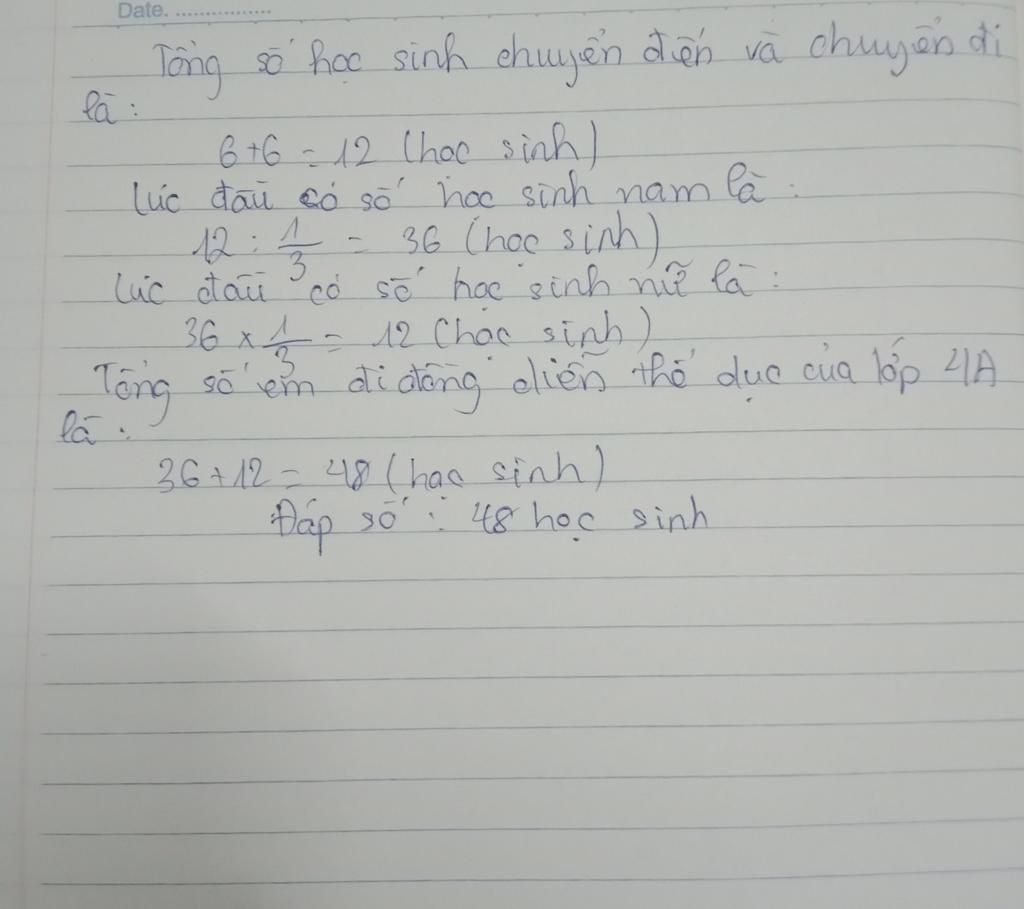 Date. ................
Tổng số học sinh chuyển đến và chuyển đi
là:
6+6 = 12 (học sinh)
Lúc đầu có số học sinh nam là:
12 : 1/3 = 36 (học sinh)
Lúc đầu có số học sinh nữ là:
36 × 1/3 = 12 (học sinh)
Tổng số em đi đồng diễn thể dục của lớp 4A
là:
36+12 = 48 (học sinh)
Đáp số: 48 học sinh